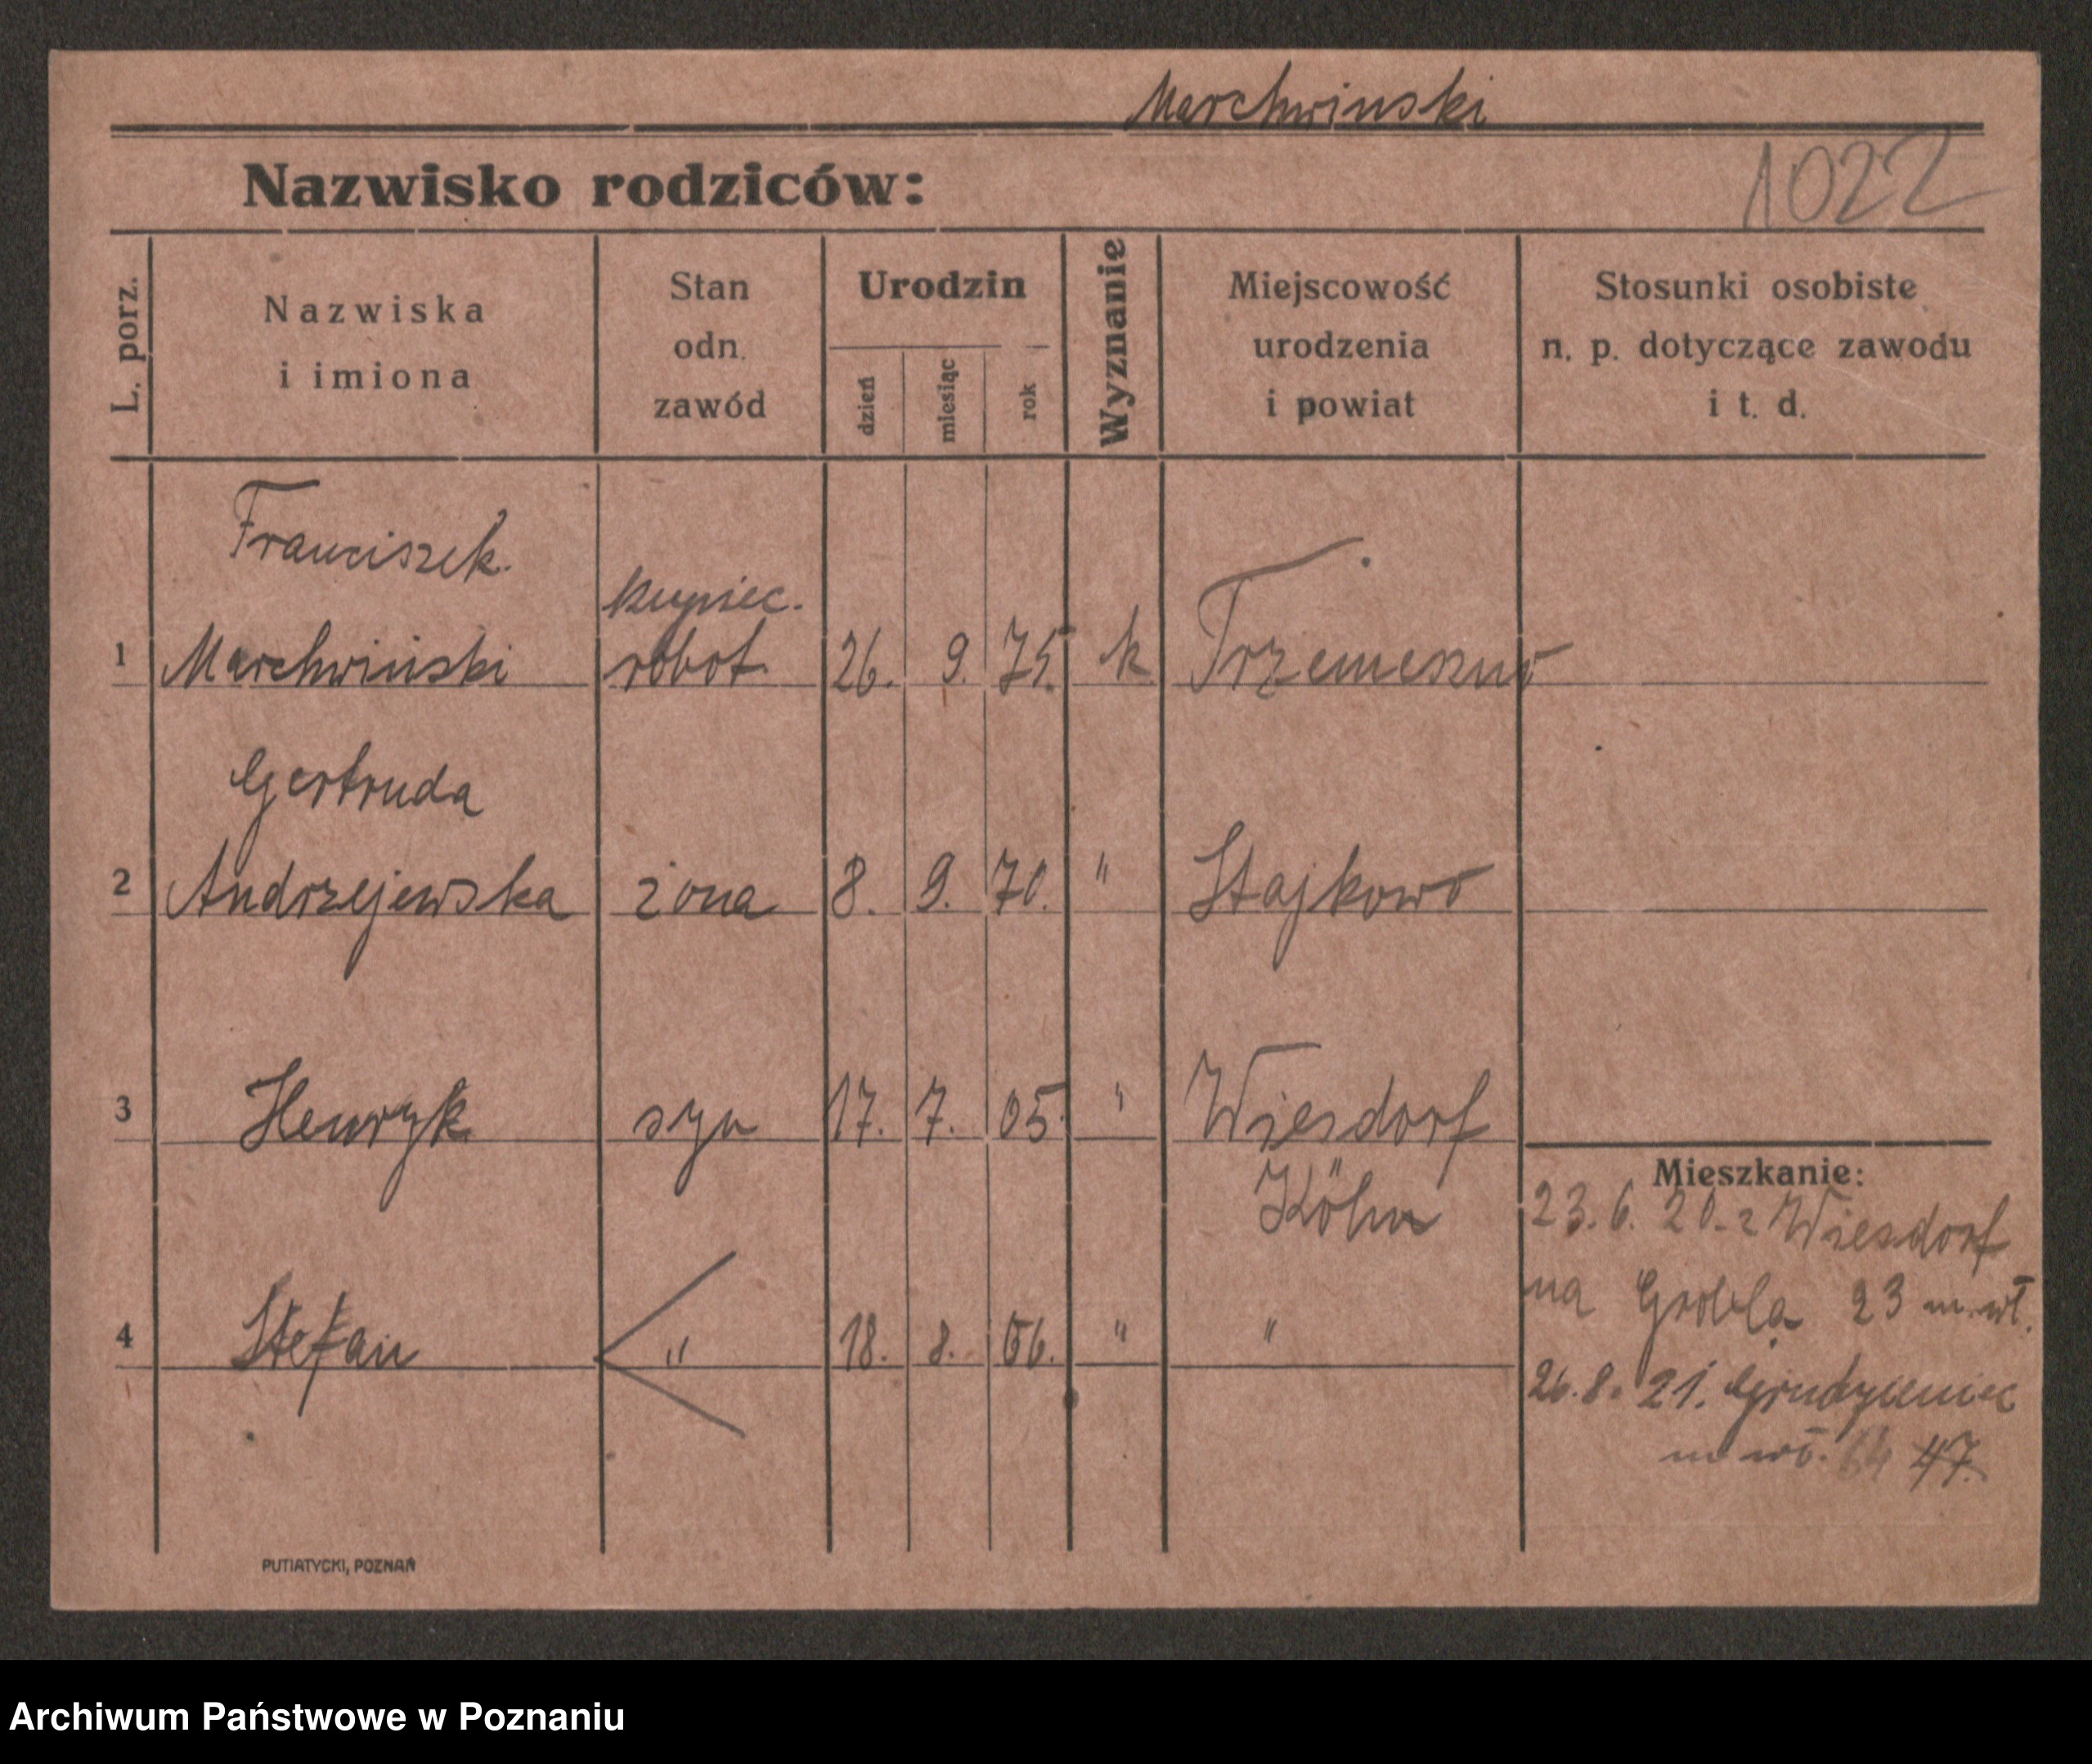 Marchwinski
Nazwisko rodziców:
1022
L. porz.
Nazwiska
i imiona
Stan
odn.
zawód
Urodzin
dzień
miesiąc
rok
Wyznanie
Miejscowość
urodzenia
i powiat
Stosunki osobiste
n. p. dotyczące zawodu
i t. d.
Franciszek.
kupiec.
1 Marchwiński robot. 26. 9. 75. k Trzemeszno
Gertruda
2 Andrzejewska żona 8. 9. 70. " Stajkowo
3 Henryk syn 17. 7. 05. " Wiesdorf
Köln
4 Stefan " 18. 8. 06. " "
Mieszkanie:
23. 6. 20. z Wiesdorf
na Grobla 23 m. wł.
26. 8. 21. Grudzieniec
m wł. 47.
PUTIATYCKI, POZNAŃ
Archiwum Państwowe w Poznaniu